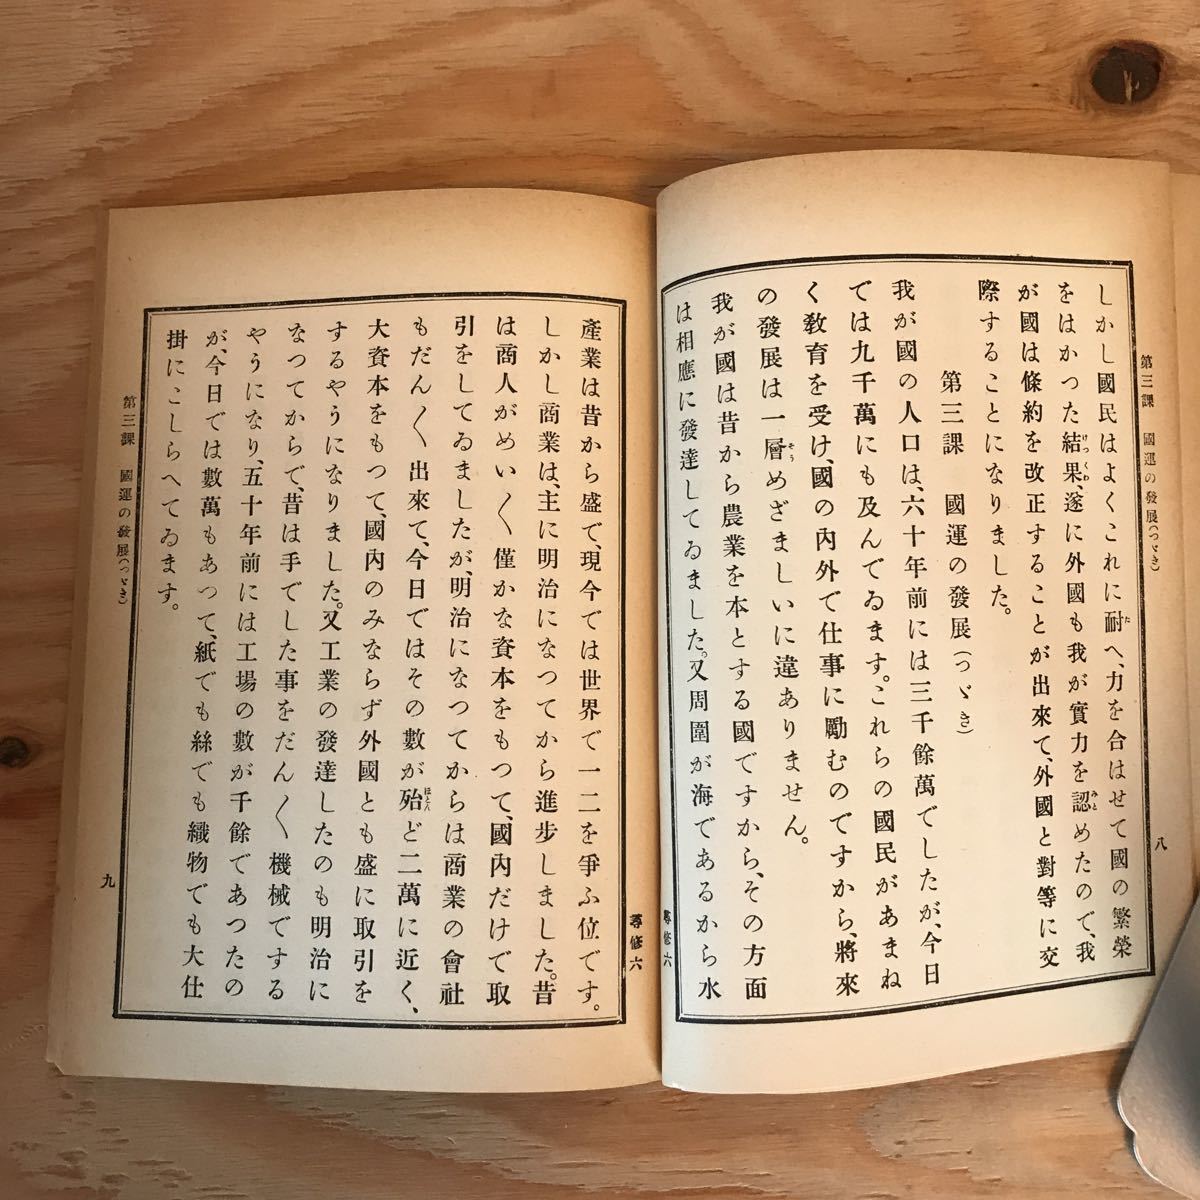 第三課　國運の發展(つゞき)
八
しかし國民はよくこれに耐へ、力を合はせて國の繁榮
をはかつた結果、遂に外國も我が實力を認めたので、我
が國は條約を改正することが出來て、外國と對等に交
際することになりました。
第三課　國運の發展(つゞき)
我が國の人口は、六十年前には三千餘萬でしたが、今日
では九千萬にも及んでゐます。これらの國民があまね
く教育を受け、國の內外で仕事に勵むのですから、將來
の發展は一層めざましいに違ありません。
我が國は昔から農業を本とする國ですから、その方面
は相應に發達してゐました。又周圍が海であるから水
尋修六
尋修六
產業は昔から盛で、現今では世界で一二を爭ふ位です。
しかし商業は、主に明治になつてから進步しました。昔
は商人がめい〳〵僅かな資本をもつて、國內だけで取
引をしてゐましたが、明治になつてからは商業の會社
もだん〳〵出來て、今日ではその數が殆ど二萬に近く、
大資本をもつて、國內のみならず外國とも盛に取引を
するやうになりました。又工業の發達したのも明治に
なつてからで、昔は手でした事をだん〳〵機械でする
やうになり、五十年前には工場の數が千餘であつたの
が、今日では數萬もあつて、紙でも絲でも織物でも大仕
掛にこしらへてゐます。
第三課　國運の發展(つゞき)
九